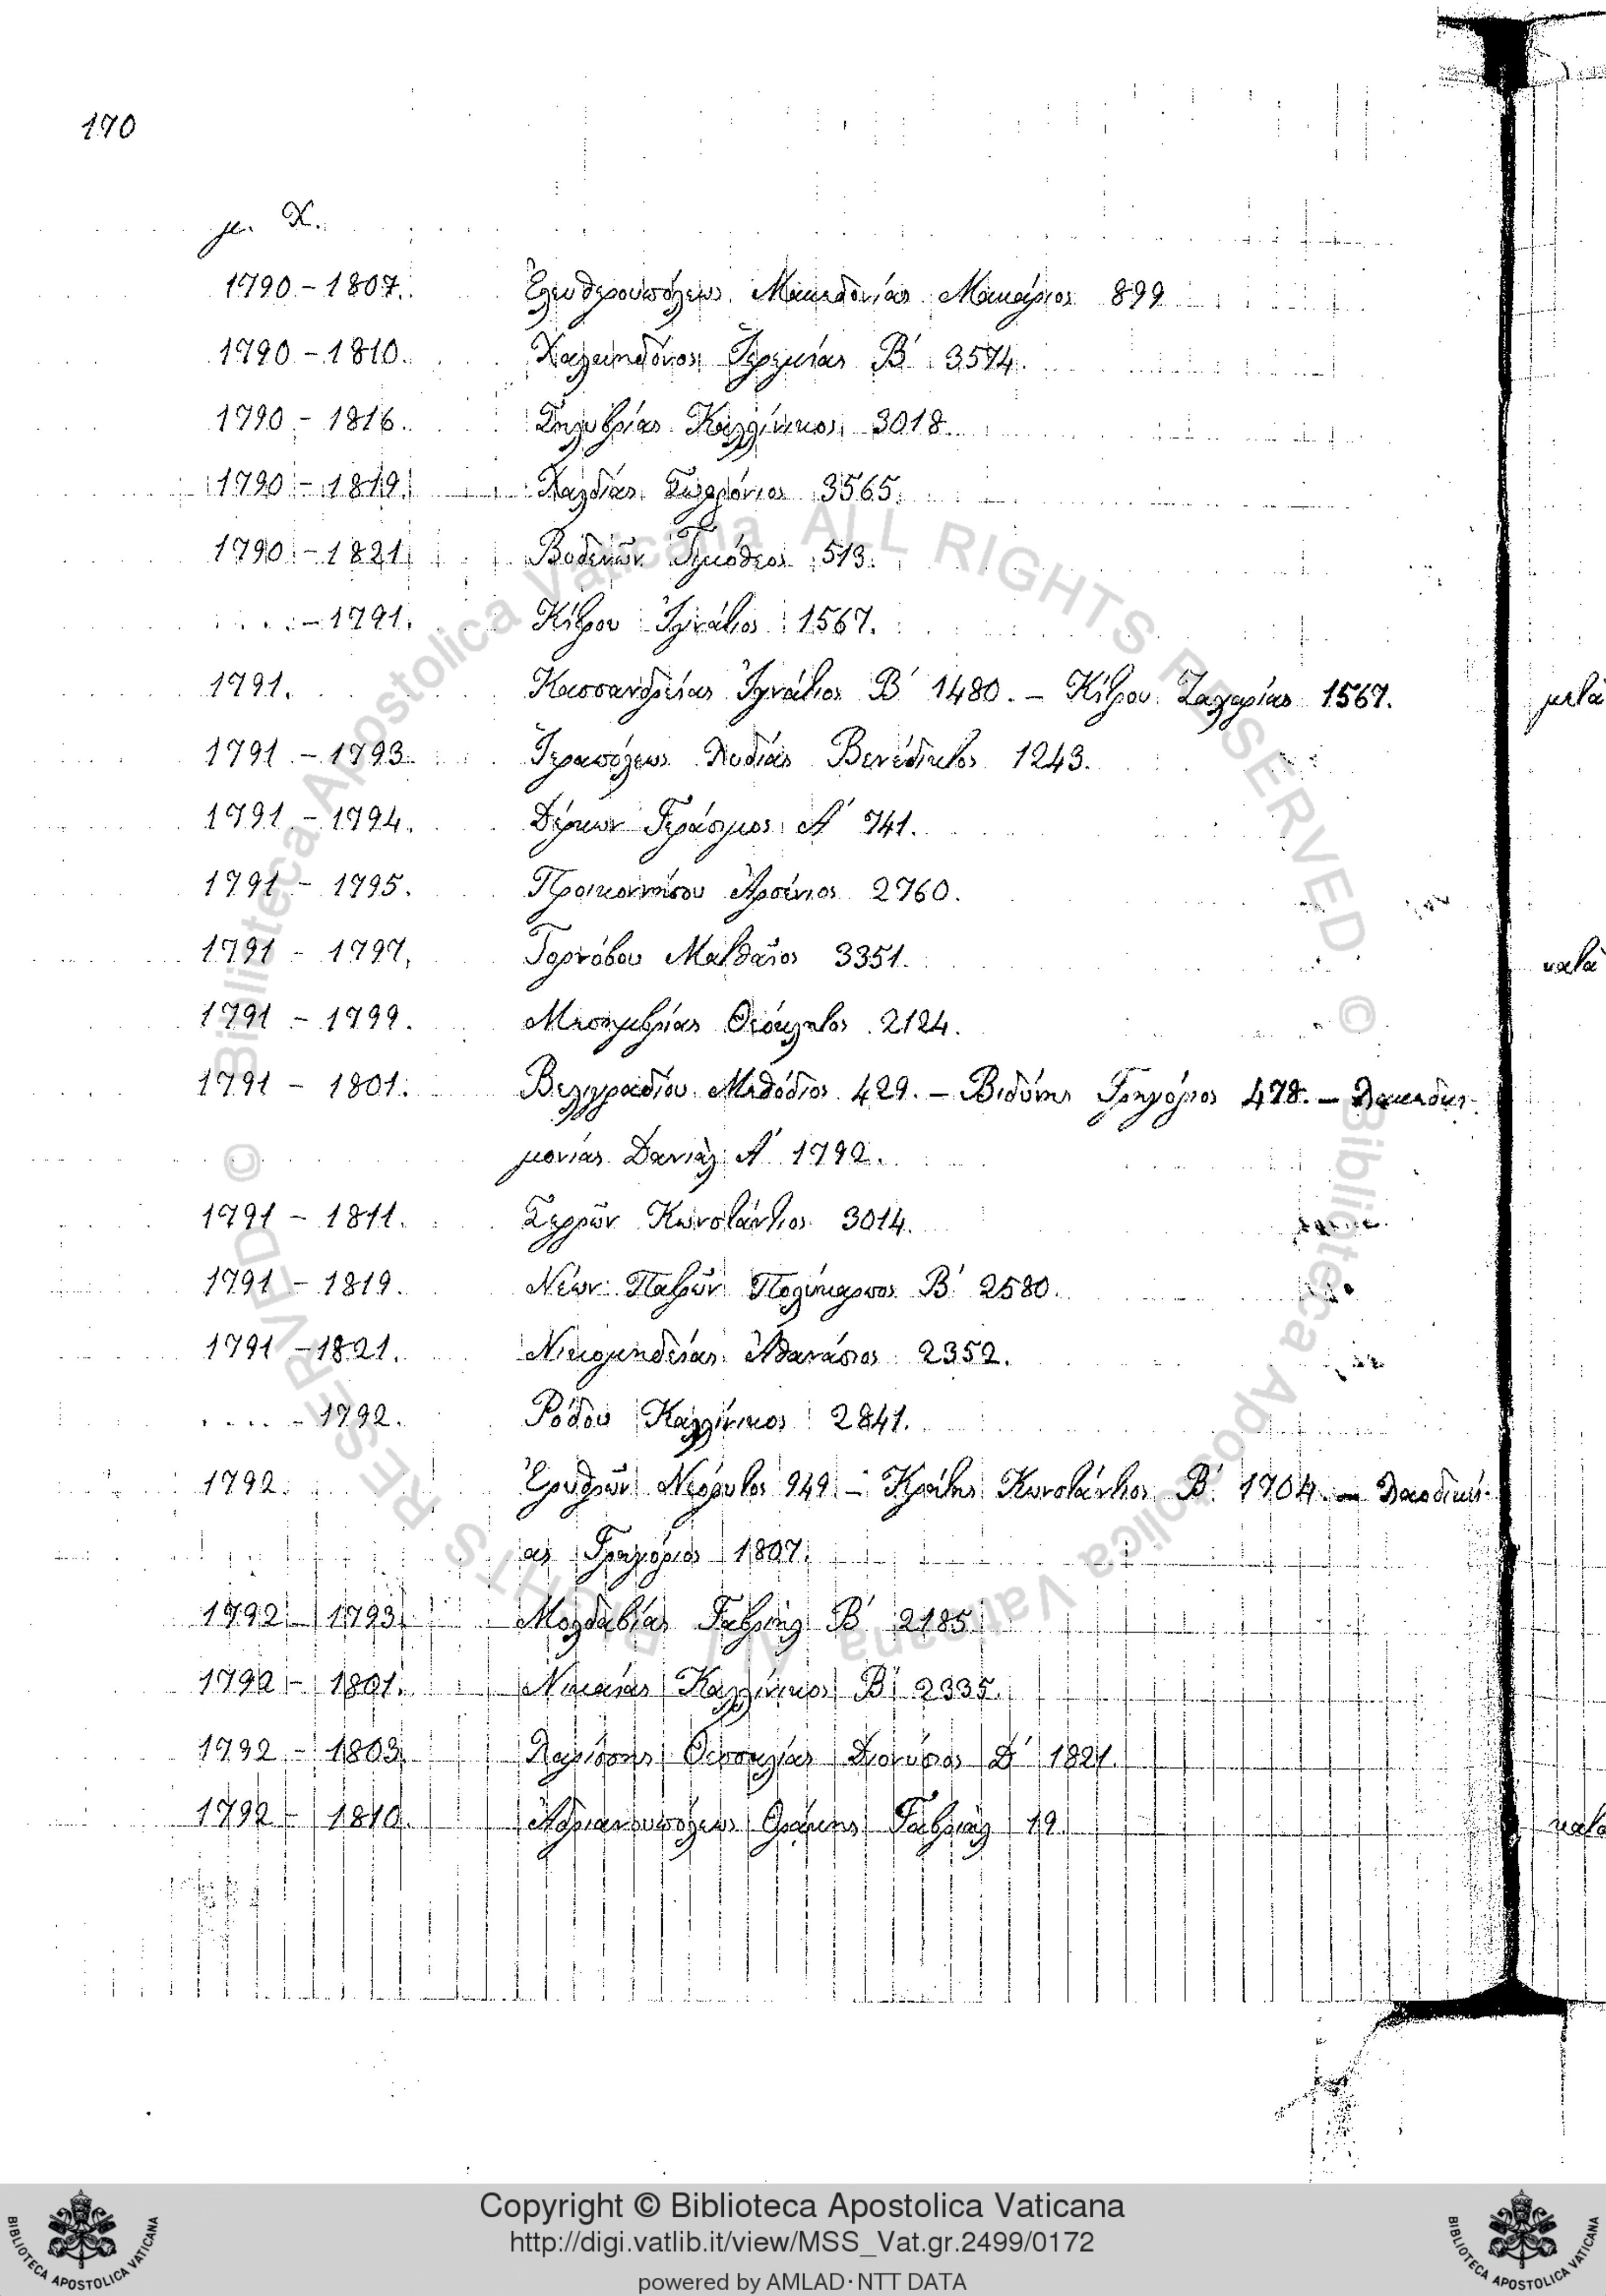 170
μ. Χ.
1790 – 1807. Ἐλευθερουπόλεως Μακεδονίας Μακάριος 899
1790 – 1810. Χαλκηδόνος Ἱερεμίας Β΄ 3574.
1790 – 1816. Σηλυβρίας Καλλίνικος 3018.
1790 – 1819. Χαλδίας Σωφρόνιος 3565.
1790 – 1821. Βοδενῶν Τιμόθεος 513.
.... – 1791. Κίτρου Ἰγνάτιος 1567.
1791. Κασσανδρείας Ἰγνάτιος Β΄ 1480. – Κίτρου Ζαχαρίας 1567.
μετὰ
1791 – 1793. Ἱεραπόλεως Λυδίας Βενέδικτος 1243.
1791 – 1794. Δέρκων Γεράσιμος Α΄ 741.
1791 – 1795. Προικοννήσου Ἀρσένιος 2760.
1791 – 1797. Τορνόβου Ματθαῖος 3351.
κατὰ
1791 – 1799. Μεσημβρίας Θεόκλητος 2124.
1791 – 1801. Βελιγραδίου Μεθόδιος 429. – Βιδύνης Γρηγόριος 478. – Λακεδαι-
μονίας Δανιὴλ Α΄ 1792.
1791 – 1811. Σερρῶν Κωνστάντιος 3014.
1791 – 1819. Νέων Πατρῶν Πολύκαρπος Β΄ 2580.
1791 – 1821. Νικομηδείας Ἀθανάσιος 2352.
.... – 1792. Ρόδου Καλλίνικος 2841.
1792. Ἐρυθρῶν Νεόφυτος 949. – Κρήτης Κωνστάντιος Β΄. 1704. – Λαοδικεί-
ας Γρηγόριος 1807.
1792 – 1793. Μολδαβίας Γαβριὴλ Β΄ 2185.
1792 – 1801. Νικαίας Καλλίνικος Β΄ 2335.
1792 – 1803. Λαρίσσης Θεσσαλίας Διονύσιος Δ΄ 1821.
1792 – 1810. Ἀδριανουπόλεως Θράκης Γαβριὴλ 19.
Copyright © Biblioteca Apostolica Vaticana
http://digi.vatlib.it/view/MSS_Vat.gr.2499/0172
powered by AMLAD·NTT DATA
BIBLIOTECA APOSTOLICA VATICANA
BIBLIOTECA APOSTOLICA VATICANA